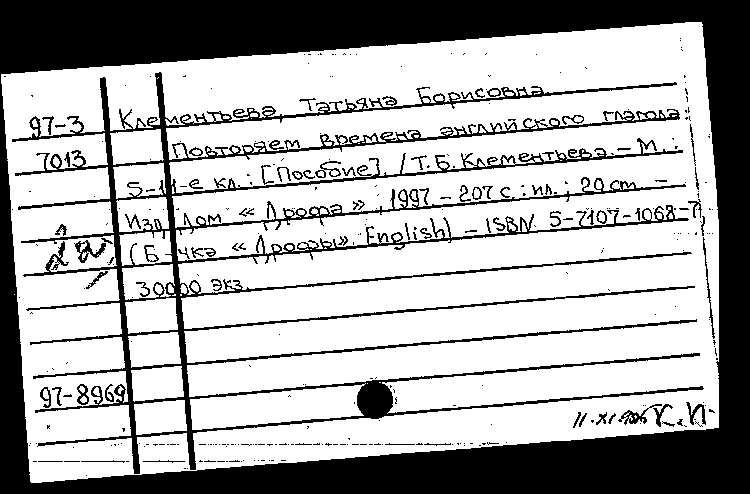 97-3 Клементьева, Татьяна Борисовна.
7013 Повторяем времена английского глагола:
5-11-е кл.: [Пособие]. /Т.Б.Клементьева.- М.:
Изд. Дом «Дрофа», 1997 - 207 с.: ил.; 20 cm. -
(Б-чка «Дрофы». English) - ISBN 5-7107-1068-7,
30000 экз.
97-8969
К.П.